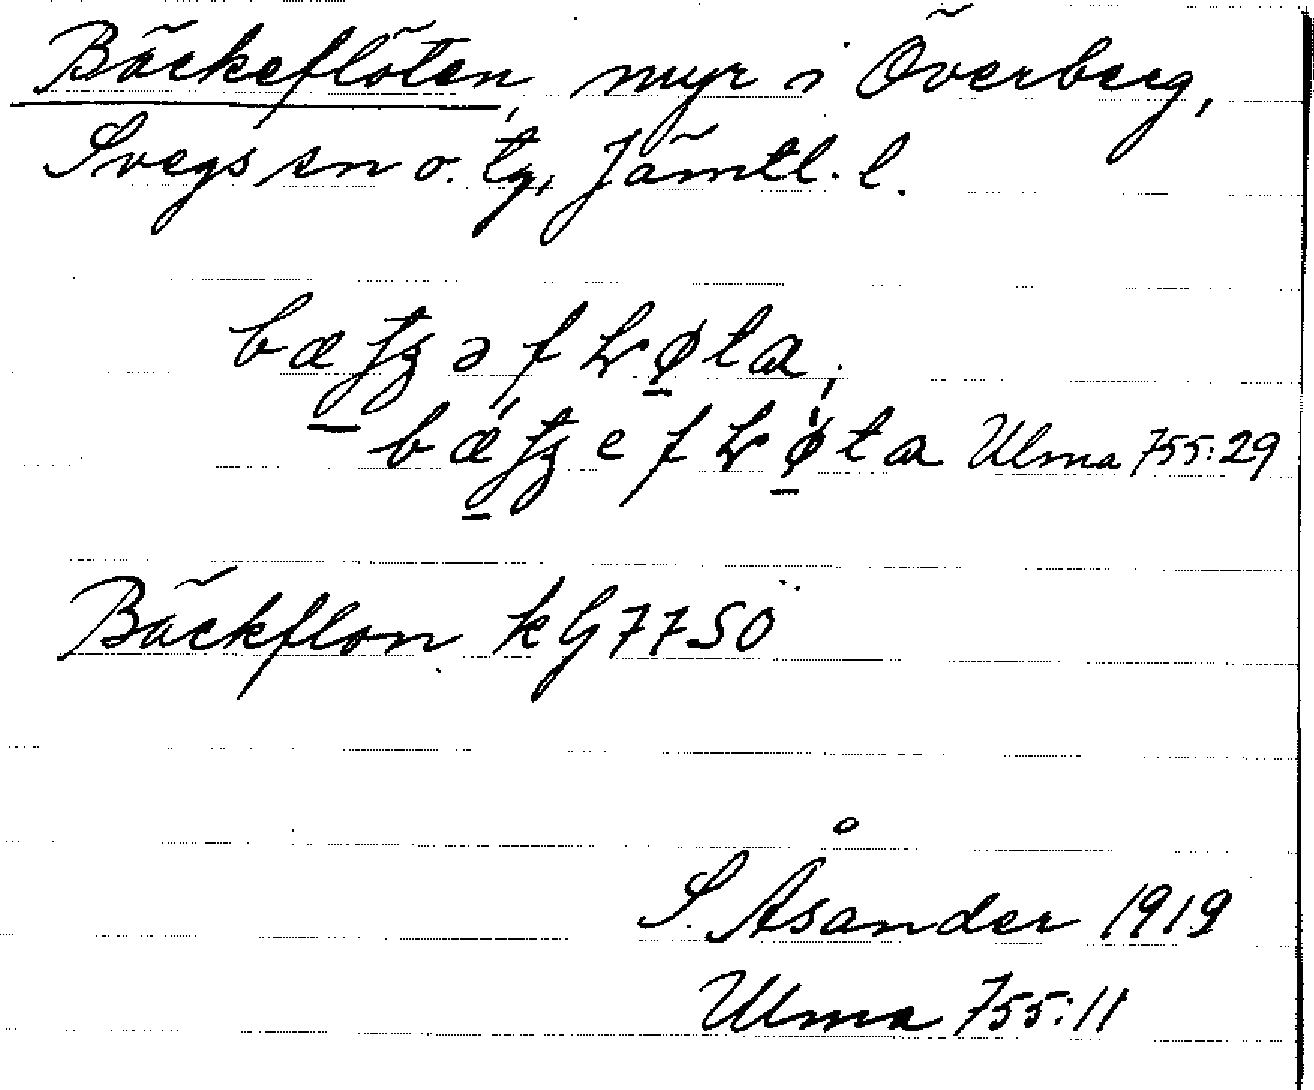 Bäckeflöten, myr i Överberg,
Svegs sn o. tg, Jämtl. l.
Ulma 755:29
Bäckflon kG 77 SÖ
S. Åsander 1919
Ulma 755:11